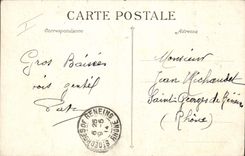 CARTE POSTALE
Correspondance
Adresse
Gros Baisers
sois gentil
Monsieur
Jean Michaudet
Saint Georges de Reneins
(Rhône)